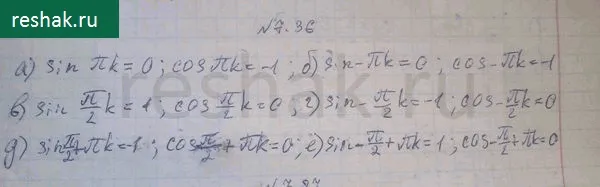 reshak.ru
№7.36
а) sin πk = 0 ; cos πk = -1 ; б) sin -πk = 0 ; cos -πk = -1
в) sin π/2 k = 1 ; cos π/2 k = 0 ; г) sin -π/2 k = -1 ; cos -π/2 k = 0
д) sin π/2 + πk = -1 ; cos π/2 + πk = 0 ; е) sin -π/2 + πk = 1 ; cos -π/2 + πk = 0
reshak.ru